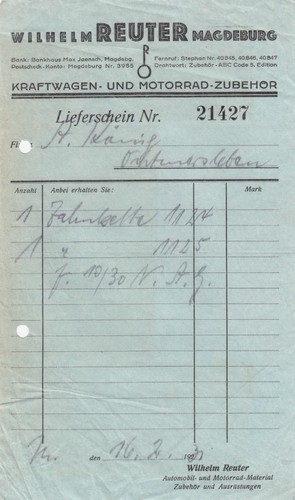 WILHELM REUTER MAGDEBURG
Bank: Bankhaus Max Jaensch, Magdebg. Fernruf: Stephan Nr. 40845, 40846, 40847
Postscheck-Konto: Magdeburg Nr. 3956 Drahtwort: Zubehör - ABC Code 5. Edition
KRAFTWAGEN- UND MOTORRAD-ZUBEHÖR
Lieferschein Nr. 21427
A. König
Ochtmersleben
Anzahl Anbei erhalten Sie: Mark
1 Zahnkette 1124
1 " 1125
f. 10/30 N. A. G.
den 16. 2. 193
Wilhelm Reuter
Automobil- und Motorrad-Material
Zubehör und Ausrüstungen